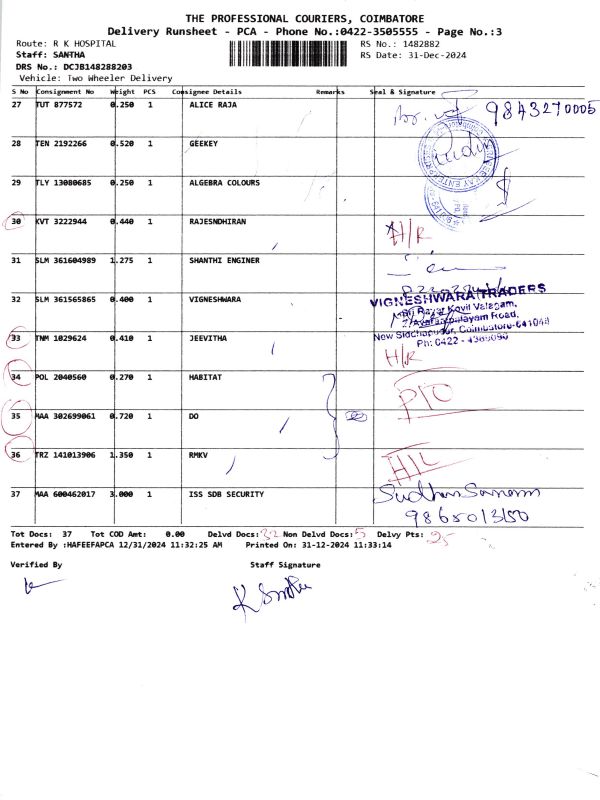 THE PROFESSIONAL COURIERS, COIMBATORE
Delivery Runsheet - PCA - Phone No.:0422-3505555 - Page No.:3
Route: R K HOSPITAL RS No.: 1482882
Staff: SANTHA RS Date: 31-Dec-2024
DRS No.: DCJB148288203
Vehicle: Two Wheeler Delivery
S No Consignment No Weight PCS Consignee Details Remarks Seal & Signature
27 TUT 877572 0.250 1 ALICE RAJA 9843270005
28 TEN 2192266 0.520 1 GEEKEY
29 TLY 13080685 0.250 1 ALGEBRA COLOURS
30 KVT 3222944 0.440 1 RAJESNDHIRAN H/R
31 SLM 361604989 1.275 1 SHANTHI ENGINER
32 SLM 361565865 0.400 1 VIGNESHWARA VIGNESHWARA TRADERS
Kovil Valagam,
New Siddhapudur, Coimbatore-641044
Ph: 0422 -
33 TNM 1029624 0.410 1 JEEVITHA H/R
34 POL 2040560 0.270 1 HABITAT PTO
35 MAA 302699061 0.720 1 DO
36 TRZ 141013906 1.350 1 RMKV H/L
37 MAA 600462017 3.000 1 ISS SDB SECURITY
9865013150
Tot Docs: 37 Tot COD Amt: 0.00 Delvd Docs: 32 Non Delvd Docs: 5 Delvy Pts: 25
Entered By :HAFEEFAPCA 12/31/2024 11:32:25 AM Printed On: 31-12-2024 11:33:14
Verified By Staff Signature